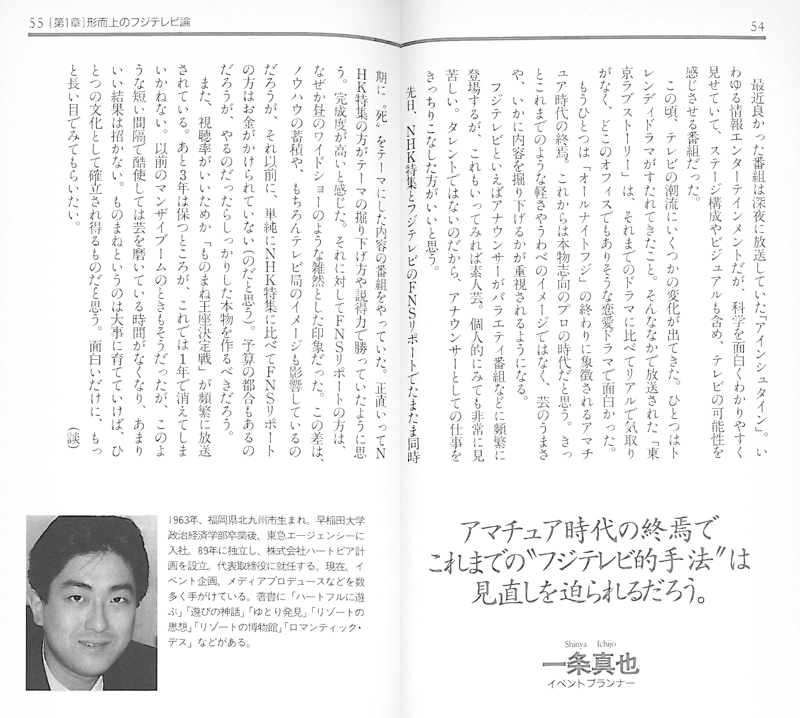 54
最近良かった番組は深夜に放送していた「アインシュタイン」。い
わゆる情報エンターテインメントだが、科学を面白くわかりやすく
見せていて、ステージ構成やビジュアルも含め、テレビの可能性を
感じさせる番組だった。
この頃、テレビの潮流にいくつかの変化が出てきた。ひとつはト
レンディドラマがすたれてきたこと。そんななかで放送された「東
京ラブストーリー」は、それまでのドラマに比べてリアルで気取り
がなく、どこのオフィスでもありそうな恋愛ドラマで面白かった。
もうひとつは「オールナイトフジ」の終わりに象徴されるアマチ
ュア時代の終焉。これからは本物志向のプロの時代だと思う。きっ
とこれまでのような軽さやうわべのイメージではなく、芸のうまさ
や、いかに内容を掘り下げるかが重視されるようになる。
フジテレビといえばアナウンサーがバラエティ番組などに頻繁に
登場するが、これもいってみれば素人芸。個人的にみても非常に見
苦しい。タレントではないのだから、アナウンサーとしての仕事を
きっちりこなした方がいいと思う。
先日、NHK特集とフジテレビのFNSリポートでたまたま同時
アマチュア時代の終焉で
これまでの〝フジテレビ的手法〟は
見直しを迫られるだろう。
Shinya Ichijo
一条真也
イベントプランナー
55 [第1章]形而上のフジテレビ論
期に〝死〟をテーマにした内容の番組をやっていた。正直いってN
HK特集の方がテーマの掘り下げ方や説得力で勝っていたように思
う。完成度が高いと感じた。それに対してFNSリポートの方は、
なぜか昼のワイドショーのような雑然とした印象だった。この差は、
ノウハウの蓄積や、もちろんテレビ局のイメージも影響しているの
だろうが、それ以前に、単純にNHK特集に比べてFNSリポート
の方はお金がかけられていない(のだと思う)。予算の都合もあるの
だろうが、やるのだったらしっかりした本物を作るべきだろう。
また、視聴率がいいためか「ものまね王座決定戦」が頻繁に放送
されている。あと3年は保つところが、これでは1年で消えてしま
いかねない。以前のマンザイブームのときもそうだったが、このよ
うな短い間隔で酷使しては芸を磨いている時間がなくなり、あまり
いい結果は招かない。ものまねというのは大事に育てていけば、ひ
とつの文化として確立され得るものだと思う。面白いだけに、もっ
と長い目でみてもらいたい。
(談)
1963年、福岡県北九州市生まれ。早稲田大学
政治経済学部卒業後、東急エージェンシーに
入社。89年に独立し、株式会社ハートピア計
画を設立。代表取締役に就任する。現在、イ
ベント企画、メディアプロデュースなどを数
多く手がけている。著書に「ハートフルに遊
ぶ」「遊びの神話」「ゆとり発見」「リゾートの
思想」「リゾートの博物館」「ロマンティック・
デス」などがある。